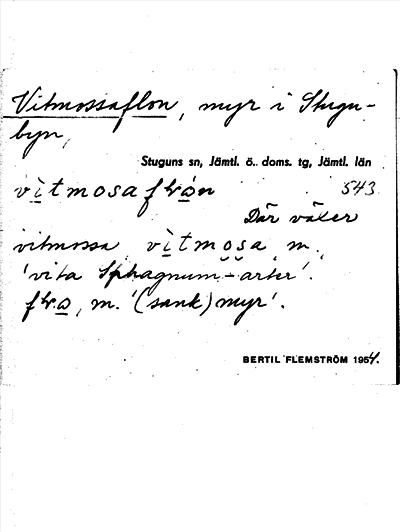 Vitmossaflon, myr i Stugu-
byn,
Stuguns sn, Jämtl. ö. doms. tg, Jämtl. län
543
Där växer
vitmossa vìtmosa m.
'vita Sphagnum-arter'.
m. '(sank)myr'.
BERTIL FLEMSTRÖM 1954.